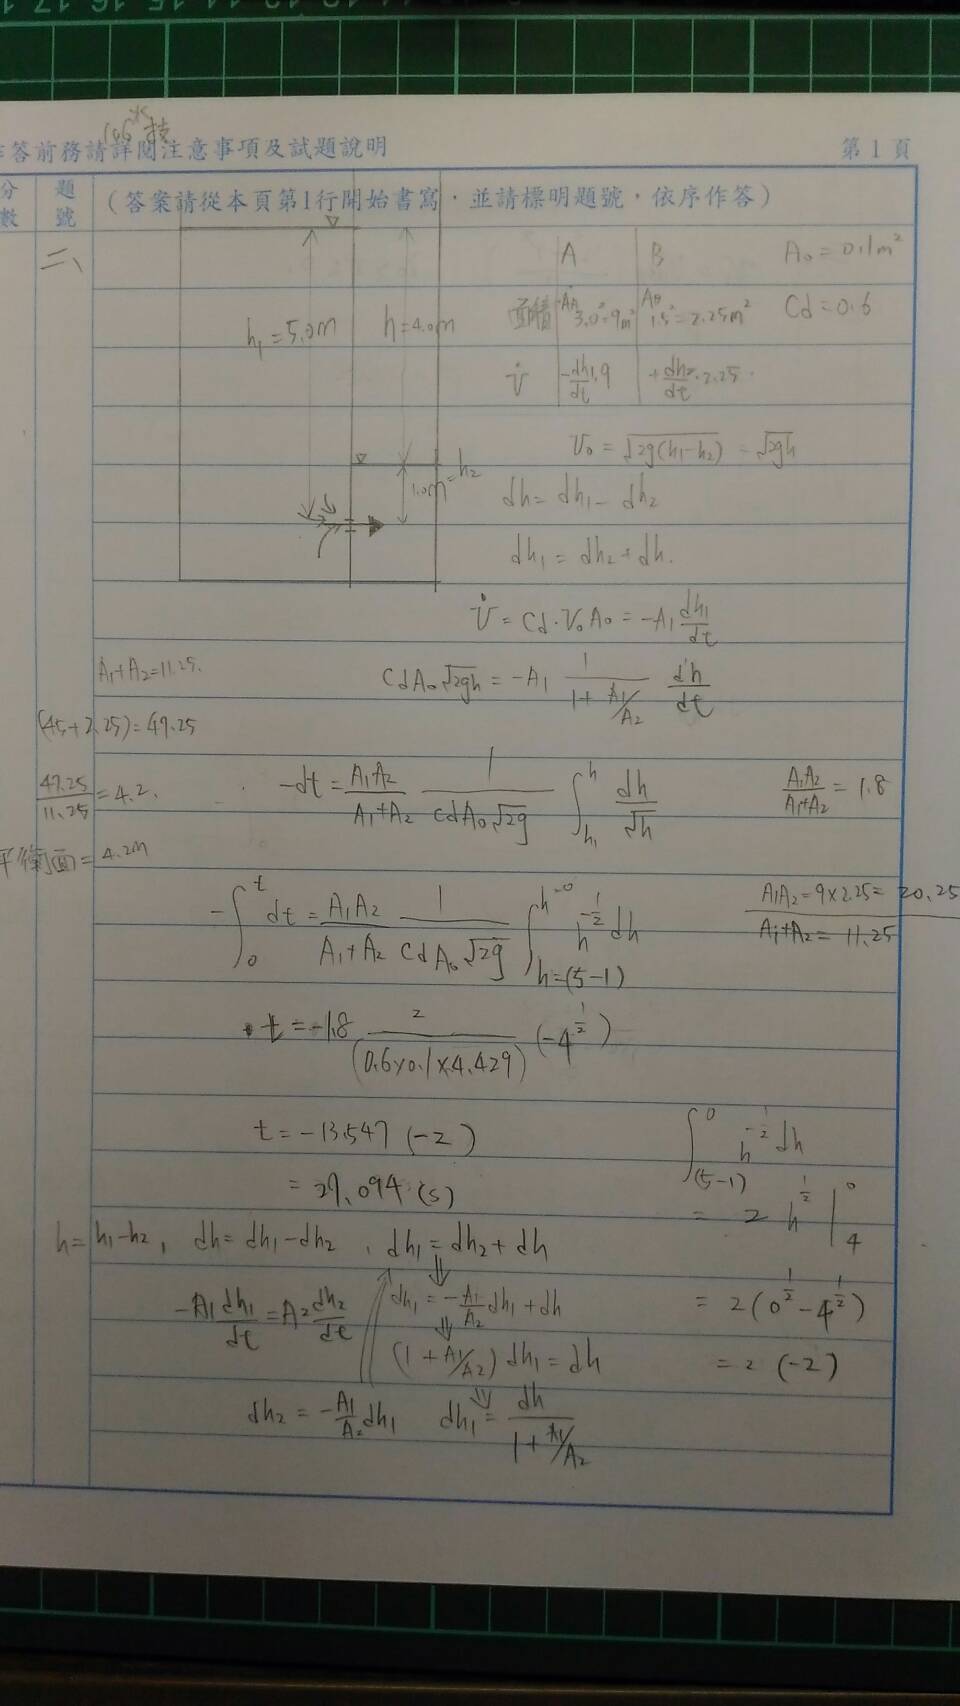 17 16 15 14 13 12 11 10 9
106 水技
作答前務請詳閱注意事項及試題說明
第 1 頁
分數
題號
(答案請從本頁第1行開始書寫,並請標明題號,依序作答)
二、
h₁=5.0m
h=4.0m
1.0m=h₂
A B
A₀=0.1m²
面積 A_A 3.0²=9m² A_B 1.5²=2.25m²
Cd=0.6
V̇ -dh₁/dt·9 +dh₂/dt·2.25
V₀=√2g(h₁-h₂) = √2gh
dh=dh₁-dh₂
dh₁=dh₂+dh.
V̇=Cd·V₀A₀=-A₁ dh₁/dt
A₁+A₂=11.25.
CdA₀√2gh=-A₁ 1/(1+A₁/A₂) dh/dt
(45+2.25)=47.25
47.25/11.25=4.2.
-dt=A₁A₂/(A₁+A₂) 1/(CdA₀√2g) ∫_h₁^h dh/√h
A₁A₂/(A₁+A₂)=1.8
平衡面=4.2m
-∫₀^t dt=A₁A₂/(A₁+A₂) 1/(CdA₀√2g) ∫_{h=(5-1)}^{h=0} h^{-1/2} dh
A₁A₂=9×2.25=20.25
A₁+A₂=11.25
t=-1.8 2/(0.6×0.1×4.429) (-4^{1/2})
t=-13.547(-2)
=27.094(s)
∫_(5-1)^0 h^{-1/2} dh
= 2 h^{1/2} |₄⁰
=2(0^{1/2}-4^{1/2})
=2(-2)
h=h₁-h₂, dh=dh₁-dh₂, dh₁=dh₂+dh
-A₁ dh₁/dt=A₂ dh₂/dt
⇓
dh₁=-A₁/A₂ dh₁+dh
⇓
(1+A₁/A₂)dh₁=dh
⇓
dh₂=-A₁/A₂ dh₁
dh₁=dh/(1+A₁/A₂)
17 16 15 14 13 12 11 10 9 8 7 6 5 4